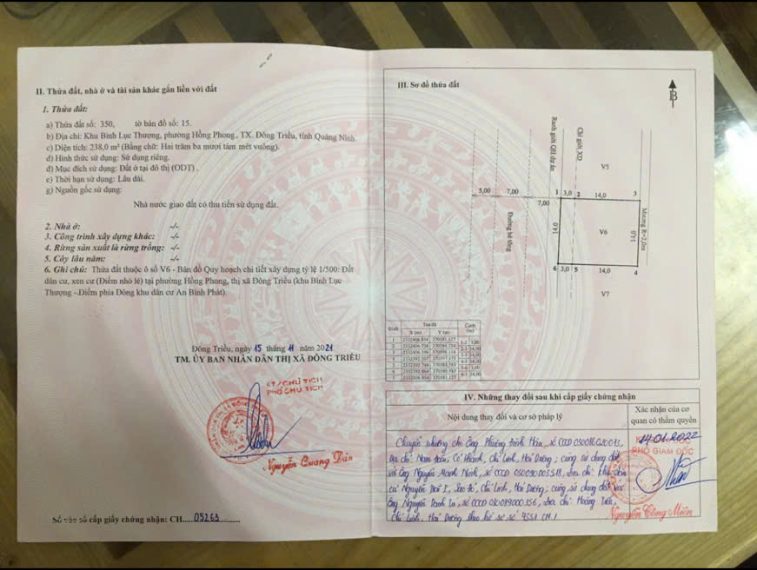 II. Thửa đất, nhà ở và tài sản khác gắn liền với đất
1. Thửa đất:
a) Thửa đất số: 350, tờ bản đồ số: 15.
b) Địa chỉ: Khu Bình Lục Thượng, phường Hồng Phong, TX. Đông Triều, tỉnh Quảng Ninh.
c) Diện tích: 238,0 m² (Bằng chữ: Hai trăm ba mươi tám mét vuông).
d) Hình thức sử dụng: Sử dụng riêng.
đ) Mục đích sử dụng: Đất ở tại đô thị (ODT).
e) Thời hạn sử dụng: Lâu dài.
g) Nguồn gốc sử dụng:
Nhà nước giao đất có thu tiền sử dụng đất.
2. Nhà ở: -/-
3. Công trình xây dựng khác: -/-
4. Rừng sản xuất là rừng trồng: -/-
5. Cây lâu năm: -/-
6. Ghi chú: Thửa đất thuộc ô số V6 - Bản đồ Quy hoạch chi tiết xây dựng tỷ lệ 1/500: Đất
dân cư, xen cư (Điểm nhỏ lẻ) tại phường Hồng Phong, thị xã Đông Triều (khu Bình Lục
Thượng - Điểm phía Đông khu dân cư An Bình Phát).
Đông Triều, ngày 15 tháng 11 năm 2021
TM. ỦY BAN NHÂN DÂN THỊ XÃ ĐÔNG TRIỀU
KT/CHỦ TỊCH
PHÓ CHỦ TỊCH
Nguyễn Quang Dân
Số vào sổ cấp giấy chứng nhận: CH 05263
III. Sơ đồ thửa đất
B
Ranh giới QH dự án
Chỉ giới XD
V5
5,00 7,00 7,00 1 3,0 2 14,0 3
Đường bê tông
14,0
V6
14,0
Mương B=2,0m
6 3,0 5 14,0 4
V7
IV. Những thay đổi sau khi cấp giấy chứng nhận
Nội dung thay đổi và cơ sở pháp lý
Xác nhận của cơ
quan có thẩm quyền
Chuyển nhượng cho ông Phùng
địa chỉ: Chí Linh, Hải Dương; cùng sử dụng đất
với ông Nguyễn Mạnh
cư Nguyễn Trãi I, Sao Đỏ, Chí Linh, Hải Dương; cùng sử dụng đất với
ông Nguyễn địa chỉ: Hoàng Tiến,
Chí Linh, Hải Dương theo hồ sơ số
14.01.2022
PHÓ GIÁM ĐỐC
Nguyễn Công Miên